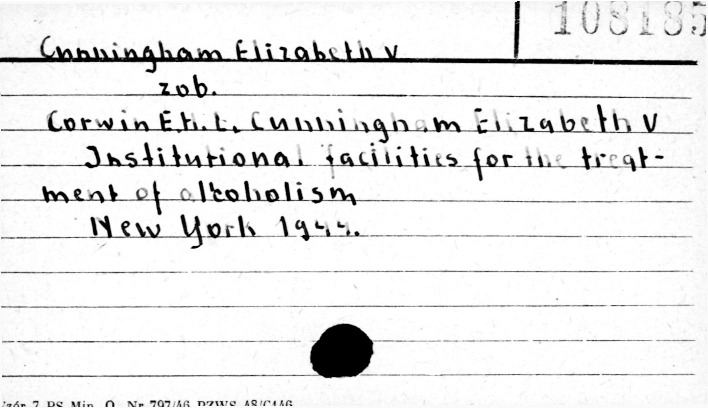 108185
Cunningham Elizabeth V
zob.
Corwin E.H.L. Cunningham Elizabeth V
Institutional facilities for the treat-
ment of alcoholism
New York 1944.
Wzór 7 PS Min. O. Nr 797/46 PZWS 48/C146